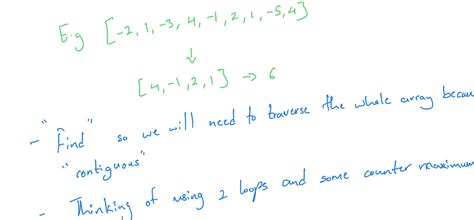 E.g [-2, 1, -3, 4, -1, 2, 1, -5, 4]
↓
[4, -1, 2, 1] → 6
- "Find" so we will need to traverse the whole array becau
"contiguous"
- Thinking of using 2 loops and some counter maximum